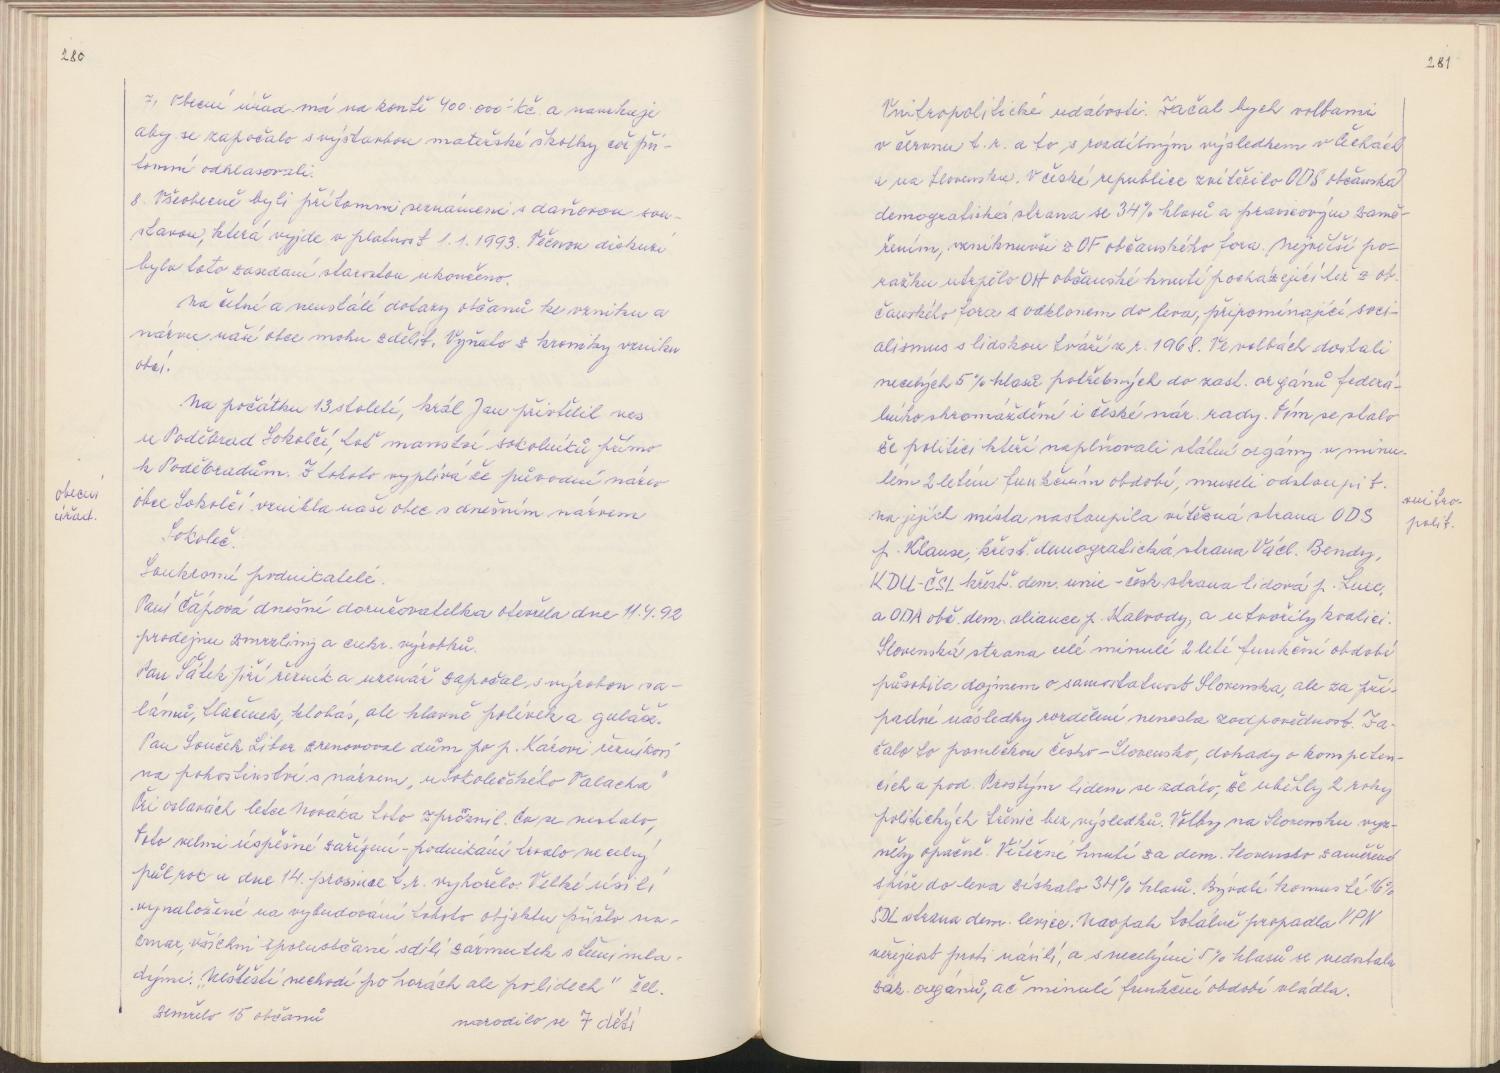 280
7, Obecní úřad má na kontě 400.000 Kč. a navrhuje
aby se započalo s výstavbou mateřské školky což pří-
tomní odhlasovali.
8. Všeobecně byli přítomni seznámeni s daňovou sou-
stavou, která vyjde v platnost 1.1.1993. Věcnou diskuzí
bylo toto zasedaní starostou ukončeno.
Na četné a neustálé dotazy občanů ke vzniku a
názvu naší obce mohu sdělit. Vyňato z kroniky vzniku
obcí.
Na počátku 13 století, král Jan přivtělil ves
u Poděbrad Sokolčí, toť manství sokolníků přímo
k Poděbradům. Z tohoto vyplívá že původní název
obce Sokolčí vznikla naše obec s dnešním názvem
Sokoleč.
obecní
úřad.
Soukromé podnikatelé.
Paní Čápová dnešní doručovatelka otevřela dne 11.4.92
prodejnu zmrzliny a cukr. výrobků.
Pan Šátek Jiří řezník a uzenář započal s výrobou sa-
lámů, tlačenek, klobás, ale hlavně polívek a guláše.
Pan Souček Libor zrenovoval dům po p. Károvi řezníkovi
na pohostinství s názvem „u Sokolečského Palacha"
Při oslavách letce Nováka toto zprůznil. Co se nestalo,
toto velmi úspěšné zařízení-podnikání trvalo necelý
půl rok a dne 14. prosince t.r. vyhořelo. Velké úsilí
vynaložené na vybudování tohoto objektu přišlo na-
zmar, všichni spoluobčané sdílí zármutek s těmi mla-
dými. „Neštěstí nechodí po horách ale po lidech" žel.
Zemřelo 15 občanů narodilo se 7 dětí
281
Vnitropolitické události. Začal bych volbami
v červnu t.r. a to s rozdílným výsledkem v Čechách
a na Slovensku. V české republice zvítězilo ODS občanská
demografická strana se 34% hlasů a pravicovým zamě-
řením, vzniknuvší z OF občanského fora. Největší po-
rážku utrpělo OH občanské hnutí pocházející též z ob-
čanského fora s odklonem do leva, připomínající soci-
alismus s lidskou tváří z r. 1968. Ve volbách dostali
necelých 5% hlasů potřebných do zast. orgánů federá-
lního shromáždění i české nár. rady. Tím se stalo
že politici kteří naplňovali státní orgány v minu-
lém 2 letím funkčním období, museli odstoupit.
na jejich místa nastoupila vítězná strana ODS
p. Klause, křesť. demografická strana Václ. Bendy,
KDU-ČSL křesť. dem. unie - česk. strana lidová p. Luxe,
a ODA obč. dem. aliance p. Kalvody, a utvořily koalici.
vnitro-
polit.
Slovenská strana celé minulé 2 leté funkční období
působila dojmem o samostatnost Slovenska, ale za pří-
padné následky rozdělení nenesla zodpovědnost. Za-
čalo to pomlčkou Česko-Slovensko, dohady o kompeten-
cích a pod. Prostým lidem se zdálo, že uběhly 2 roky
politických třenic bez výsledků. Volby na Slovensku vyz-
něly opačně. Vítězné hnutí za dem. Slovensko zaměřené
spíše do leva získalo 34% hlasů. Bývalí komusté 16%
SDL strana dem. levice. Naopak totálně propadla VPN
veřejnost proti násilí, a s necelými 5% hlasů se nedostala
zas. orgánů, ač minulé funkční období vládla.